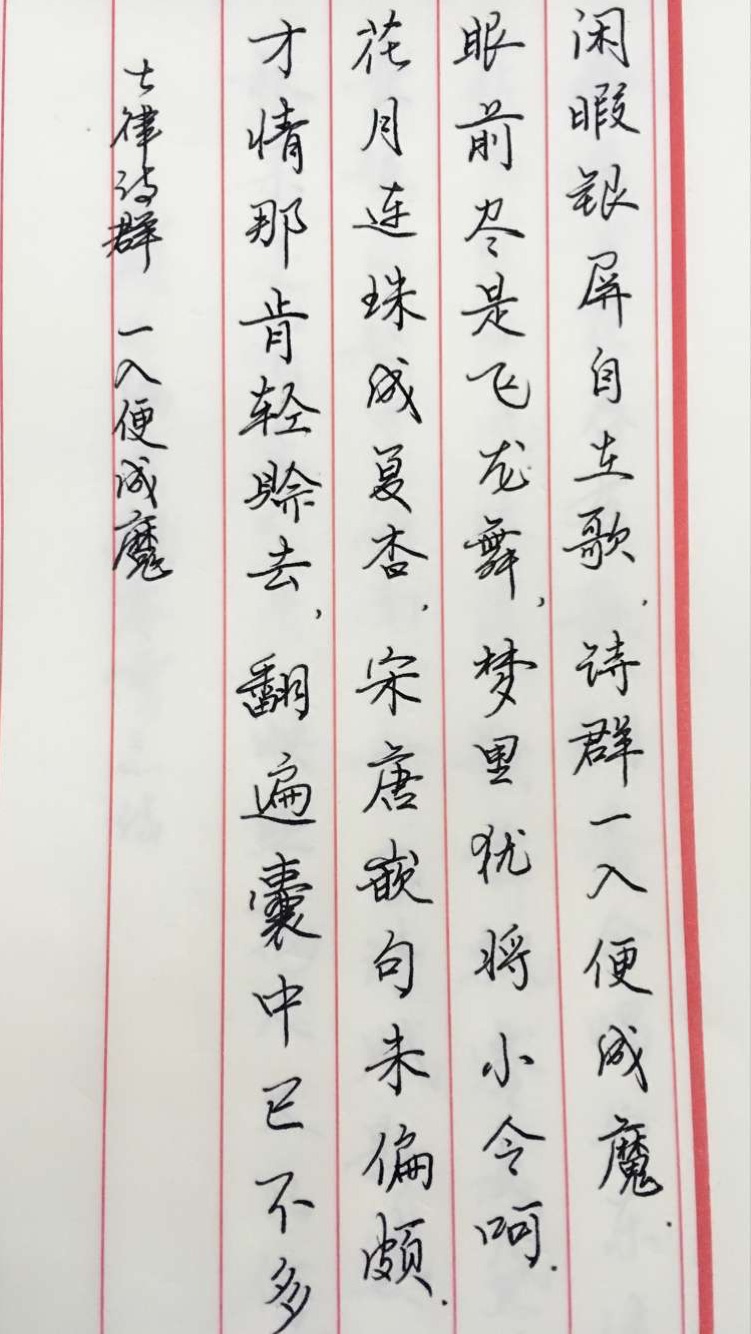 闲暇银屏自在歌，诗群一入便成魔．
眼前尽是飞龙舞，梦里犹将小令呵．
花月连珠成夏杏，宋唐嵌句未偏颇．
才情那肯轻赊去，翻遍囊中已不多
七律诗群 一入便成魔